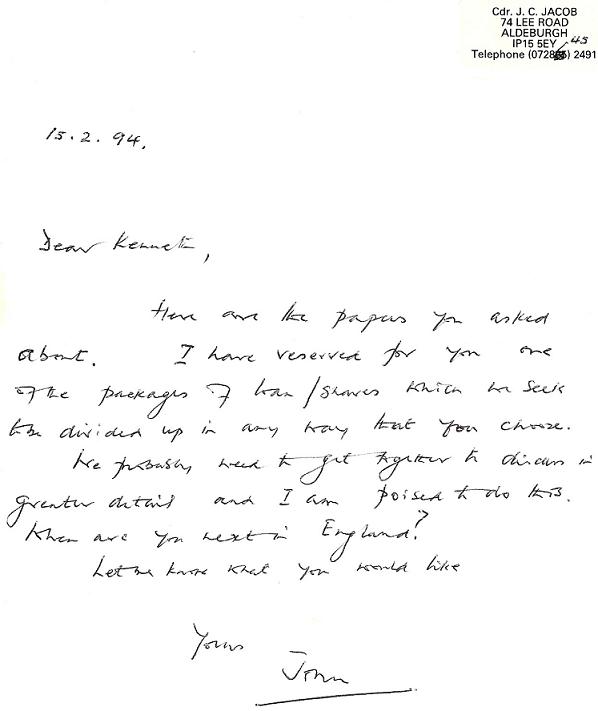 Cdr. J. C. JACOB
74 LEE ROAD
ALDEBURGH
IP15 5EY
45
Telephone (0728) 2491
15.2.94.
Dear Kenneth,
Here are the papers you asked
about. I have reserved for you one
of the packages of loan/shares which we seek
to be divided up in any way that you choose.
We probably need to get together to discuss in
greater detail and I am poised to do this.
When are you next in England?
Let me know what you would like
Yours
John